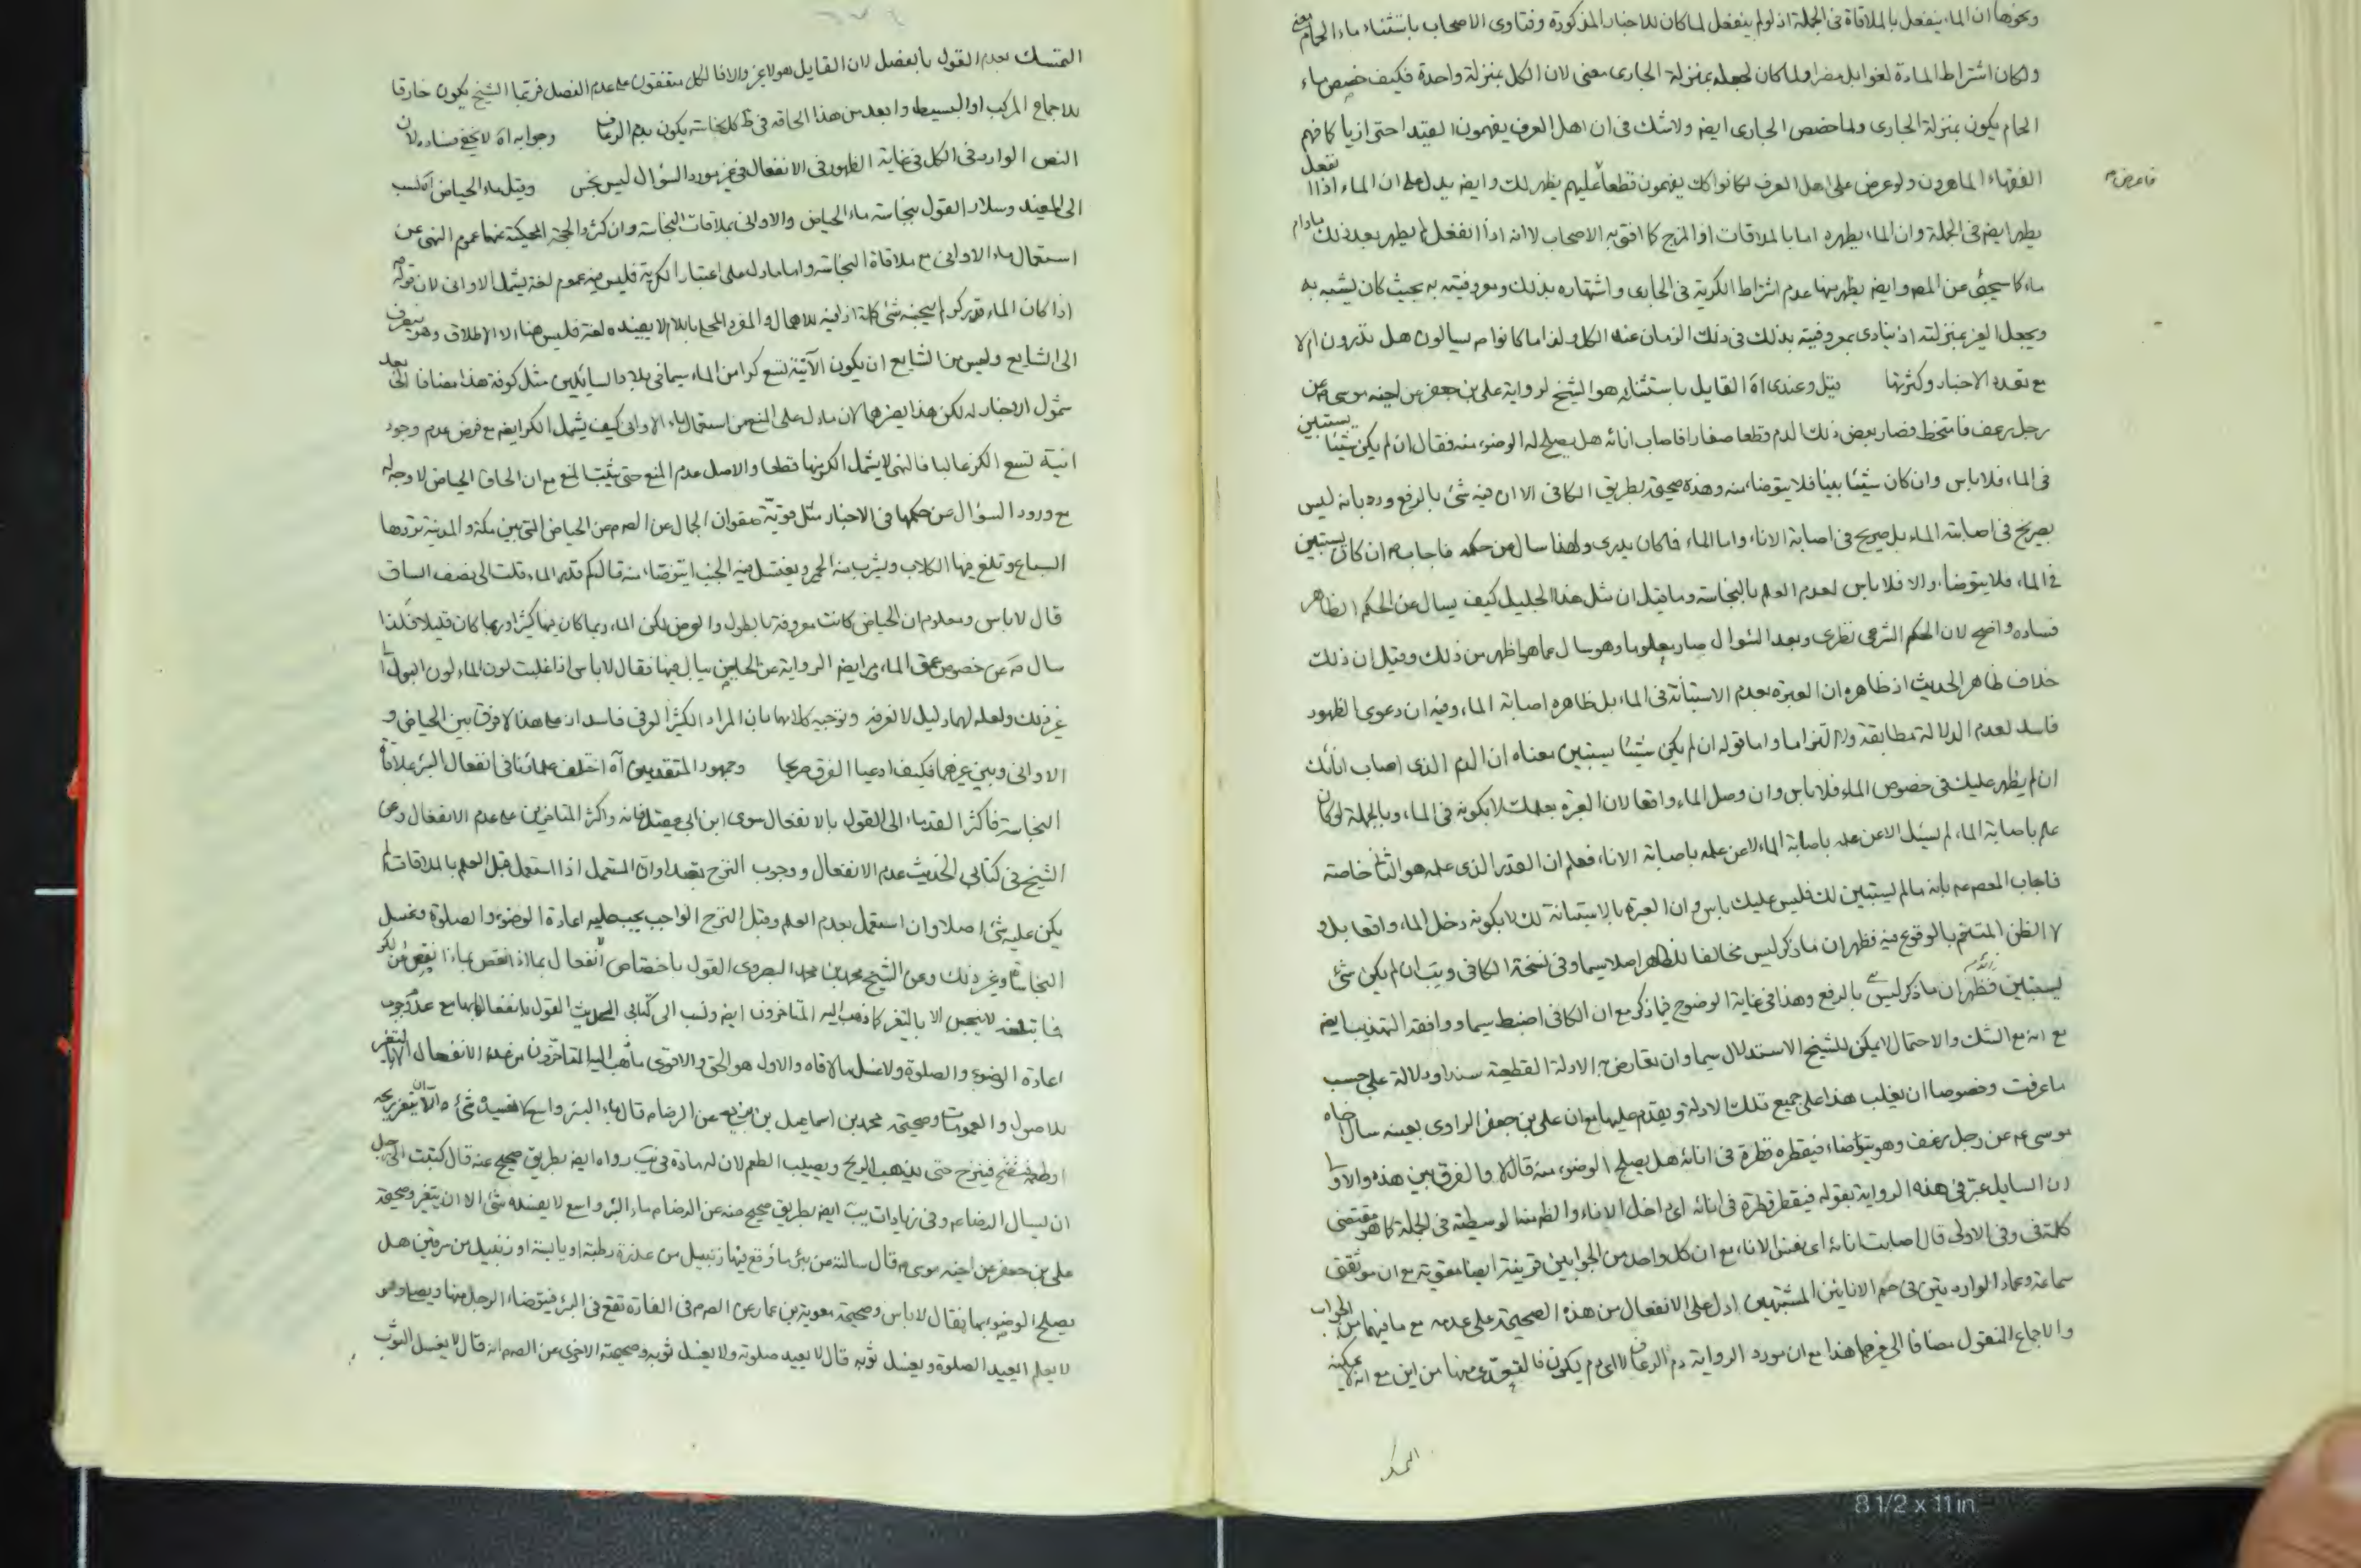 ونحوها ان الماء ينفعل بالملاقاة فى الجملة اذ لو لم ينفعل لما كان للاخبار المذكورة وفتاوى الاصحاب باستثناء ماء الحمام معنى
ولكان اشتراط المادة لغوا بل مضرا ولما كان لجعله بمنزلة الجارى معنى لان الكل بمنزلة واحدة فكيف خصص ماء
الحمام يكون بمنزلة الجارى ولما خصص الجارى ايضه ولاشك فى ان اهل العرف يفهمون القيد احترازيا كما فهم
الفقهاء الماهرون ولو عرض على اهل العرف لكانوا كك يفهمون قطعا فاعرض عليهم يظهر لك وايضه يدل على ان الماء اذا انفعل
يطهر ايضه فى الجملة وان الماء يطهره اما بالملاقات او المزج كما افتى به الاصحاب لا انه اذا انفعل لم يطهر بعد ذلك مادام
ماء كما سيجئ عن المصه وايضه يظهر منها عدم اشتراط الكرية فى الجارى واشتهاره بذلك ومعروفيته به بحيث كان يشبه به
ويجعل الغير بمنزلته اذ ينادى بمعروفيته بذلك فى ذلك الزمان عند الكل ولذا ما كانوا يسالون هل تدرون ام لا
مع تعدد الاخبار وكثرتها قيل وعندى آه القايل باستثنائه هو الشيخ لرواية على بن جعفر عن اخيه موسى عن
رجل رعف فامتخط فصار بعض ذلك الدم قطعا صغارا فاصاب انائه هل يصلح له الوضوء منه فقال ان لم يكن شيئا يستبين
فى الماء فلا باس وان كان شيئا بينا فلا يتوضا منه وهذه صحيحة بطريق الكافى الا ان فيه شئ بالرفع ورد بانه ليس
بصريح فى اصابته الماء بل صريح فى اصابة الاناء واما الماء فكان يدرى ولهذا سال عن حكمه فاجابه ان كان يستبين
فى الماء فلا يتوضا والا فلا باس لعدم العلم بالنجاسة وما قيل ان مثل هذا الجليل كيف يسال عن الحكم الظاهر
فساده واضح لان الحكم الشرعى نظرى وبعد السؤال صار معلوما وهو سال عما هو اظهر من ذلك وقيل ان ذلك
خلاف ظاهر الحديث اذ ظاهره ان العبرة بعدم الاستبانة فى الماء بل ظاهره اصابة الماء وفيه ان دعوى الظهور
فاسد لعدم الدلالة مطابقة ولا التزاما واما قوله ان لم يكن شيئا يستبين معناه ان الدم الذى اصاب انائك
ان لم يظهر عليك فى خصوص الماء فلا باس وان وصل الماء واقعا لان العبرة بعلمك لا بكونه فى الماء وبالجملة لو كان
علم باصابة الماء لم يسئل الا عن علمه باصابة الماء لا عن علمه باصابة الاناء فعلم ان القدر الذى علمه هو الثانى خاصة
فاجاب المعصوم عم بانه ما لم يستبين لك فليس عليك باس وان العبرة بالاستبانة لك لا بكونه دخل الماء واقعا بل و
لا الظن المتاخم بالوقوع فيه فظهر ان ما ذكر ليس مخالفا للظاهر اصلا سيما وفى نسخة الكافى ويب ان لم يكن شئ
يستبين فظهر ان ما ذكر ليس بالرفع وهذا فى غاية الوضوح فيما ذكر مع ان الكافى اضبط سيما ووافقه التهذيب ايضه
مع انه مع الشك والاحتمال لا يمكن للشيخ الاستدلال سيما وان تعارض به الادلة القطعية سندا ودلالة على حسب
ما عرفت وخصوصا ان يغلب هذا على جميع تلك الادلة ويقدم عليها مع ان على بن جعفر الراوى بعينه سال اخاه
موسى عم عن رجل رعف وهو يتوضا فيقطره قطرة فى انائه هل يصلح الوضوء منه قال لا والفرق بين هذه والاولى
ان السايل عبر فى هذه الرواية بقوله فيقطر قطرة فى انائه اى داخل الاناء والظرفية الوسطية فى الجملة كما هو مقتضى
كلمة فى وفى الاولى قال اصابت انائه اى نفس الاناء مع ان كل واحد من الجوابين قرينة ايضا مقوية مع ان موثقتى
سماعة وعمار الواردتين فى حكم الانائين المشتبهين ادل على الانفعال من هذه الصحيحة على عدمه مع ما فيهما من الجواب
والاجماع المنقول مضافا الى غيرها هذا مع ان مورد الرواية دم الرعاف لا اى دم يكون فالتعدى منها من اين مع انه لا يمكنه
التمسك
التمسك بعدم القول بالفصل لان القايل هو لا غير والا فالكل متفقون على عدم الفصل فربما الشيخ يكون خارقا
للاجماع المركب او البسيط وابعد من هذا الحاقه فى ط كل نجاسة يكون بدم الرعاف وجوابه آه لا يخفى فساده لان
النص الوارد فى الكل فى غاية الظهور فى الانفعال فى غير مورد السؤال ليس بنجس وقيل ماء الحياض آه نسب
الى المفيد وسلار القول بنجاسة ماء الحياض والاوانى بملاقات النجاسة وان كثر والحجة المحكية عنهما عموم النهى عن
استعمال ماء الاوانى مع ملاقاة النجاسة واما ما دل على اعتبار الكرية فليس فيه عموم لغة يشمل الاوانى لان قوله
اذا كان الماء قدر كر لم ينجسه شئ كلمة اذا فيه للاهمال والمفرد المحلى باللام لا يفيده لغة فليس هنا الا الاطلاق وهو ينصرف
الى الشايع وليس من الشايع ان يكون الآنية تسع كرا من الماء سيما فى بلاد السائلين مثل كوفة هذا مضافا الى بعد
شمول الاخبار له لكن هذا يضرهما لان ما دل على المنع من استعمال ماء الاوانى كيف يشمل الكر ايضه مع فرض عدم وجود
انية تسع الكر غالبا فالنهى لا يشمل الكر منها قطعا والاصل عدم المنع حتى يثبت المنع مع ان الحاق الحياض لا وجه له
مع ورود السؤال عن حكمها فى الاخبار مثل قوية صفوان الجمال عن الصم عن الحياض التى بين مكة والمدينة تردها
السباع وتلغ فيها الكلاب ويشرب منه الحمير ويغتسل فيه الجنب ايتوضا منه قال كم قدر الماء قلت الى نصف الساق
قال لا باس ومعلوم ان الحياض كانت معروفة بالطول والعرض لكن الماء ربما كان فيها كثيرا وربما كان قليلا فلذا
سال عن خصوص عمق الماء وايضه الرواية عن الحياض يبال فيها فقال لا باس اذا غلبت لون الماء لون البول الى
غير ذلك ولعله لهما دليل لا نعرفه وتوجيه كلامها بان المراد الكثير العرفى فاسد اذ على هذا لا فرق بين الحياض و
الاوانى وبين غيرهما فكيف ادعيا الفرق صريحا وجمهور المتقدمين آه اختلف علمائنا فى انفعال البئر بملاقاة
النجاسة فاكثر القدماء الى القول بالانفعال سوى ابن ابى عقيل فانه واكثر المتاخرين على عدم الانفعال وعن
الشيخ فى كتابى الحديث عدم الانفعال ووجوب النزح تعبدا وان المستعمل اذا استعمل قبل العلم بالملاقات لم
يكن عليه شئ اصلا وان استعمل بعدم العلم وقبل النزح الواجب يجب عليه اعادة الوضوء والصلوة وغسل
النجاسة وغير ذلك وعن الشيخ محمد بن محمد البصروى القول باختصاص الانفعال بما اذا نقص ماءه عن كر
لا ينجس الا بالتغير كما ذهب اليه المتاخرون ايضه ونسب الى كتابى الحديث القول بانفعالها مع عدم وجوب
اعادة الوضوء والصلوة ولا غسل ما لاقاه والاول هو الحق والاقوى ما ذهب اليه المتاخرون من عدم الانفعال الا بالتغير
للاصول والعمومات وصحيحة محمد بن اسماعيل بن بزيع عن الرضا قال ماء البئر واسع لا يفسده شئ الا ان يتغير ريحه
او طعمه فينزح حتى يذهب الريح ويطيب الطعم لان له مادة فى يب رواه ايضه بطريق صحيح عنه قال كتبت الى رجل
ان يسال الرضا عم وفى زيادات يب ايضه بطريق صحيح عنه عن الرضا ماء البئر واسع لا يفسده شئ الا ان يتغير وصحيحة
على بن جعفر عن اخيه موسى قال سالته عن بئر ماء وقع فيها زنبيل من عذرة رطبة او يابسة او زنبيل من سرقين هل
يصلح الوضوء منها فقال لا باس وصحيحة معوية بن عمار عن الصم فى الفارة تقع فى البئر فيتوضا الرجل منها ويصلى وهو
لا يعلم ايعيد الصلوة ويغسل ثوبه قال لا يعيد صلوته ولا يغسل ثوبه وصحيحته الاخرى عن الصم انه قال لا يغسل الثوب